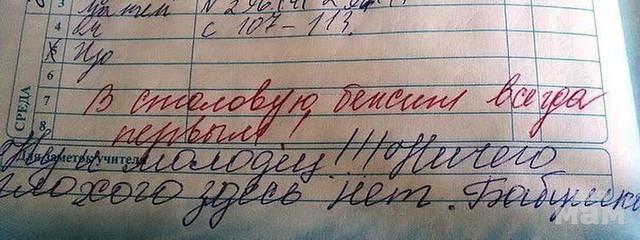 3 № 296 (4)
4 с 107-113.
5 Изо
6
СРЕДА
7 В столовую бежит всегда
8 первым!
Для заметок учителя
Ну и молодец!!! Ничего
плохого здесь нет. Бабушка
мам